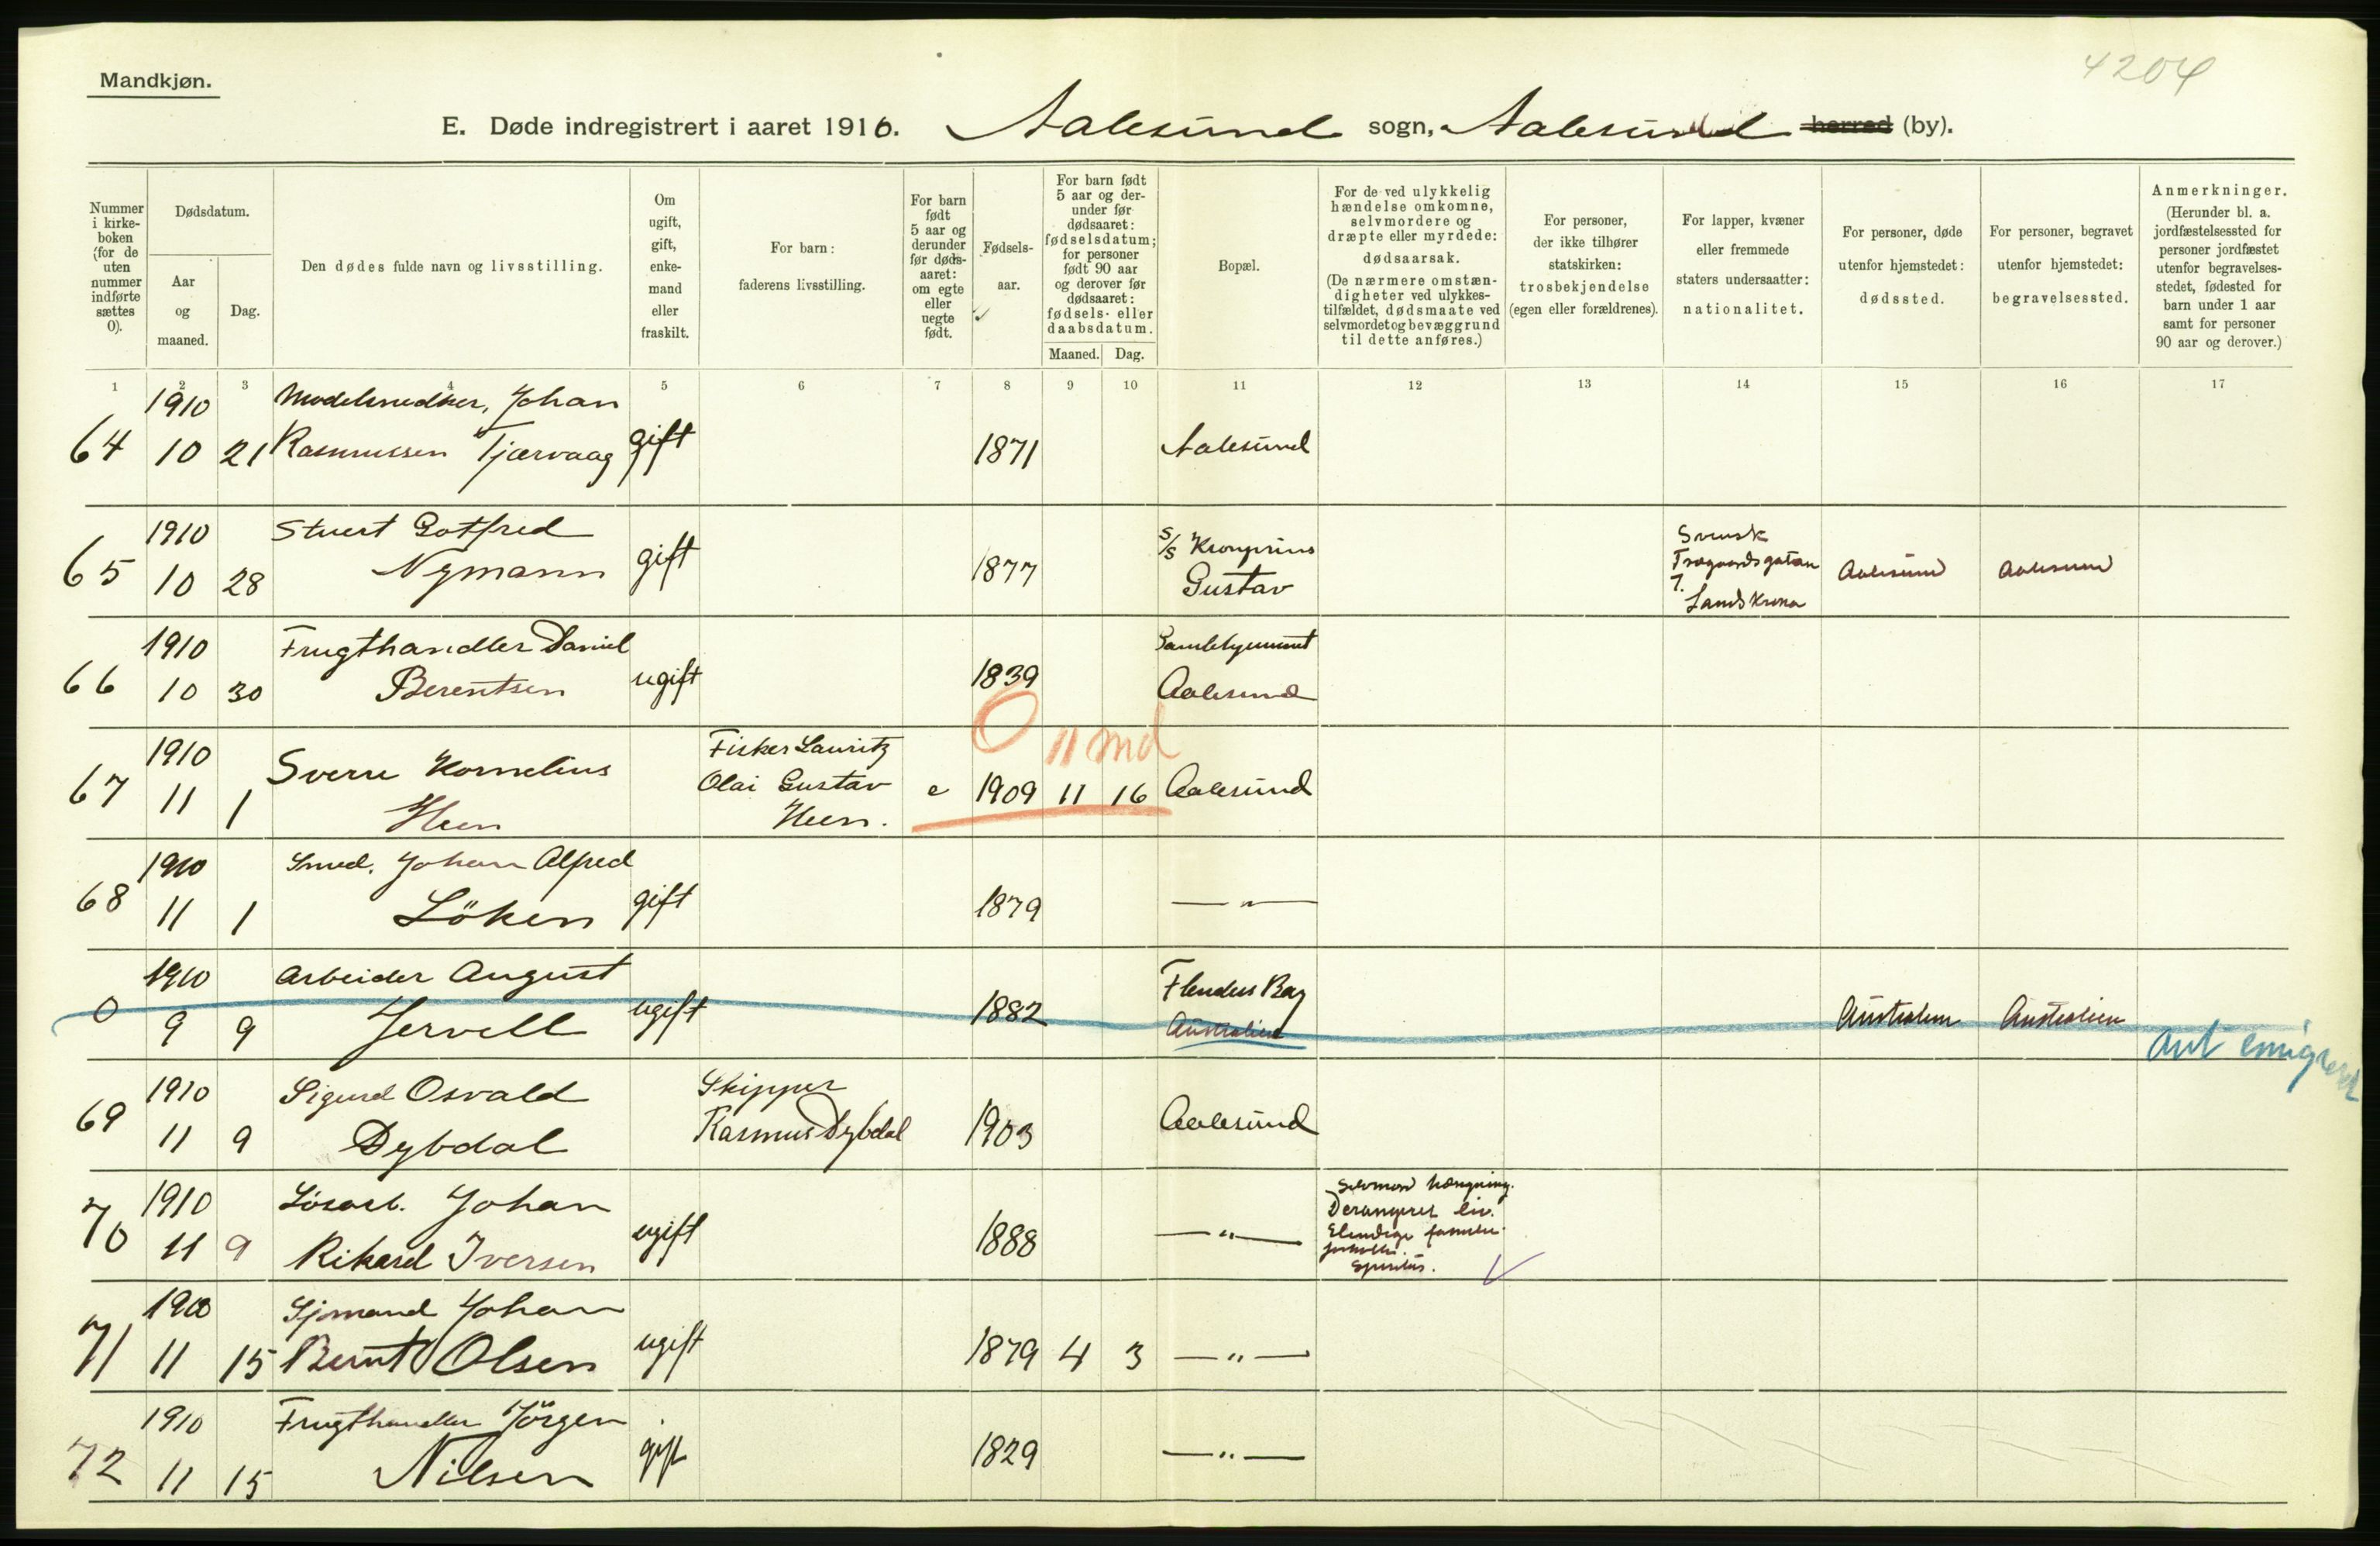 4204
Mandkjøn.
E. Døde indregistrert i aaret 1910. Aalesund sogn, Aalesund herred (by).
Nummer i kirke-boken (for de uten nummer indførte sættes 0).
Dødsdatum.
Aar og maaned.
Dag.
Den dødes fulde navn og livsstilling.
Om ugift, gift, enke-mand eller fraskilt.
For barn: faderens livsstilling.
For barn født 5 aar og derunder før døds-aaret: om egte eller uegte født.
Fødsels-aar.
For barn født 5 aar og der-under før dødsaaret: fødselsdatum; for personer født 90 aar og derover før dødsaaret: fødsels- eller daabsdatum.
Maaned. Dag.
Bopæl.
For de ved ulykkelig hændelse omkomne, selvmordere og dræpte eller myrdede: dødsaarsak.
(De nærmere omstæn-digheter ved ulykkes-tilfældet, dødsmaate ved selvmordet og bevæggrund til dette anføres.)
For personer, der ikke tilhører statskirken: trosbekjendelse (egen eller forældrenes).
For lapper, kvæner eller fremmede staters undersaatter: nationalitet.
For personer, døde utenfor hjemstedet: dødssted.
For personer, begravet utenfor hjemstedet: begravelsessted.
Anmerkninger. (Herunder bl. a. jordfæstelsessted for personer jordfæstet utenfor begravelses-stedet, fødested for barn under 1 aar samt for personer 90 aar og derover.)
1 2 3 4 5 6 7 8 9 10 11 12 13 14 15 16 17
1910 Modelsnedker, Johan
64 10 21 Rasmussen Tjærvaag gift 1871 Aalesund
1910 Stuert Gotfred S/S Kronprins Svensk
65 10 28 Nymann gift 1877 Gustav Tragaardsgatan 7. Landskrona Aalesund Aalesund
1910 Frugthandler Daniel Gamlehjemmet
66 10 30 Berentsen ugift 1839 Aalesund
0 11 md
1910 Sverre Kornelius Fisker Lauritz
67 11 1 Heen Olai Gustav Heen. e 1909 11 16 Aalesund
1910 Smed. Johan Alfred
68 11 1 Löken gift 1879 — " —
1910 Arbeider August Flenders Bay
0 9 9 Jervell ugift 1882 Australien Australien Australien
ant emigreret
1910 Sigurd Osvald Skipper
69 11 9 Dybdal Rasmus Dybdal 1903 Aalesund
1910 Lösarb. Johan Selvmord hængning.
70 11 9 Rikard Iversen ugift 1888 — " — Derangeret liv.
Elendige familie
forholde.
Spiritus.
1910 Sjømand Johan
71 11 15 Bernt Olsen ugift 1879 4 3 — " —
1910 Frugthandler Jörgen
72 11 15 Nilsen gift 1829 — " —